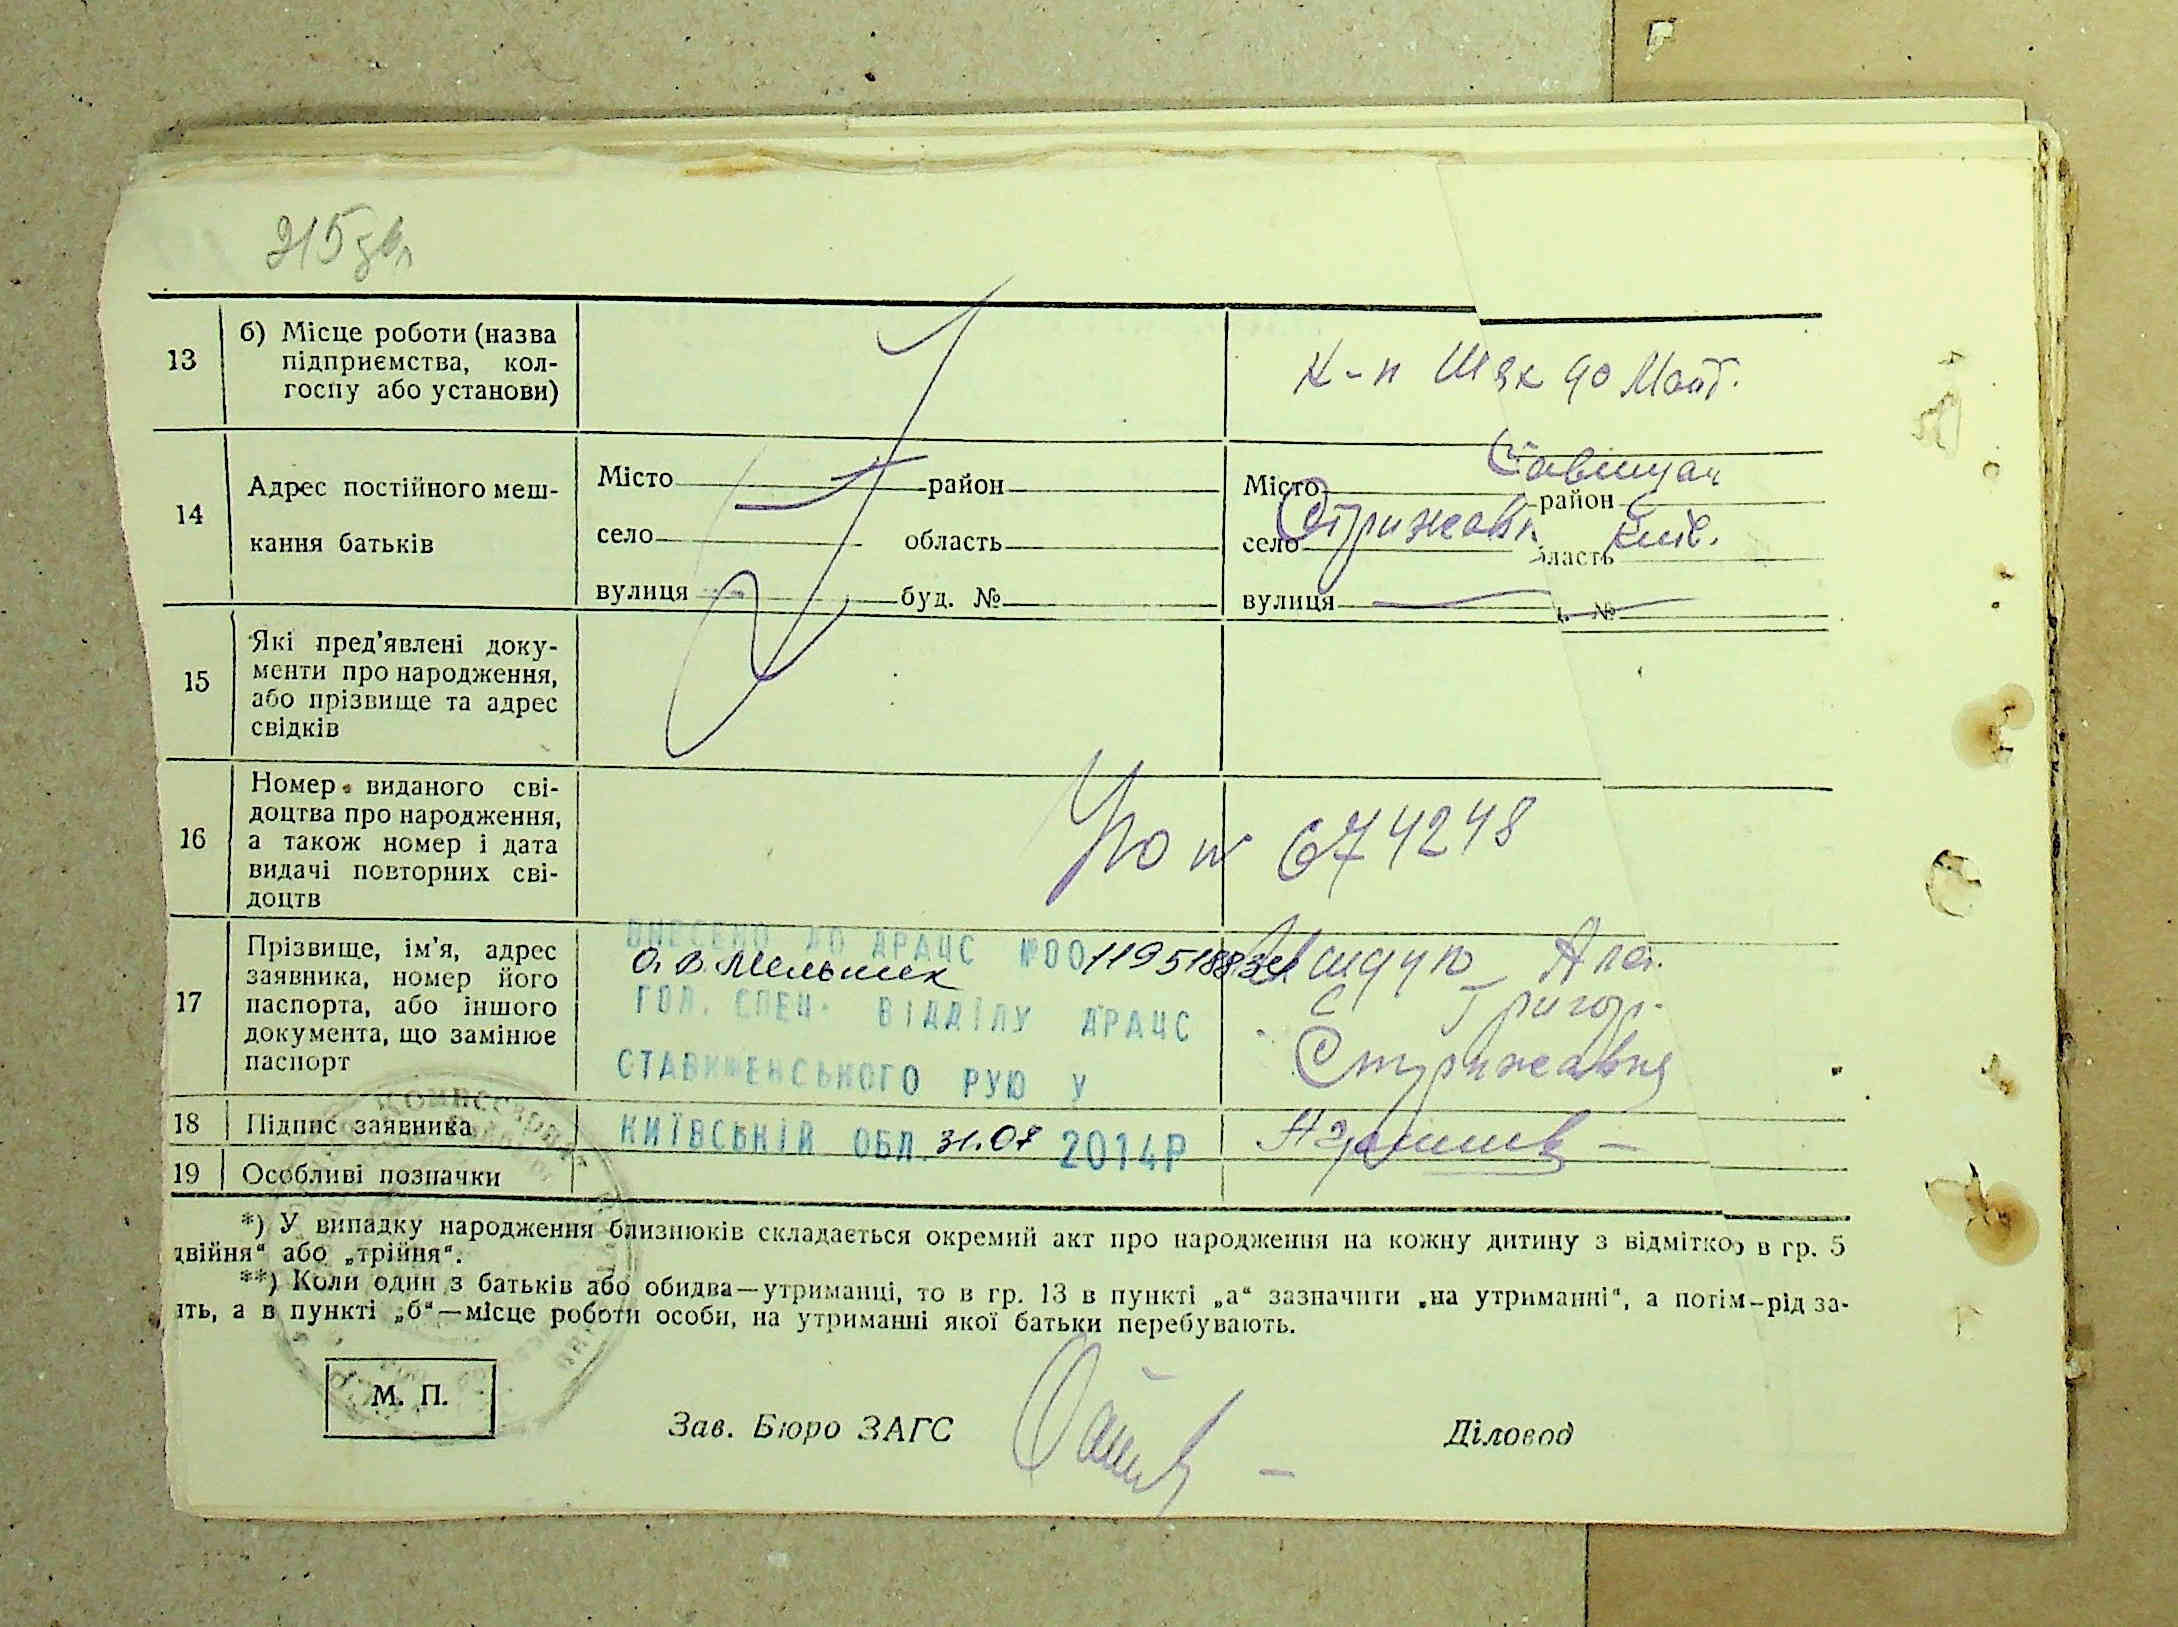 215
13
б) Місце роботи (назва
підприємства, кол-
госпу або установи)
14
Адрес постійного меш-
кання батьків
Місто район
село область
вулиця буд. №
Місто район
Стрижавк
село ласть Київ.
вулиця №
15
Які пред’явлені доку-
менти про народження,
або прізвище та адрес
свідків
16
Номер виданого сві-
доцтва про народження,
а також номер і дата
видачі повторних сві-
доцтв
674248
17
Прізвище, ім’я, адрес
заявника, номер його
паспорта, або іншого
документа, що замінює
паспорт
ВНЕСЕНО ДО ДРАЦС №00119518834
О. В. Мельник
ГОЛ. СПЕЦ. ВІДДІЛУ ДРАЦС
СТАВИЩЕНСЬКОГО РУЮ У
КИЇВСЬКІЙ ОБЛ. 31.07 2014Р
Григор.
18
Підпис заявника
19
Особливі позначки
*) У випадку народження близнюків складається окремий акт про народження на кожну дитину з відмітко в гр. 5
двійня“ або „трійня“.
**) Коли один з батьків або обидва—утриманці, то в гр. 13 в пункті „а“ зазначити „на утриманні“, а потім—рід за-
ть, а в пункті „б“—місце роботи особи, на утриманні якої батьки перебувають.
М. П.
Зав. Бюро ЗАГС
Діловод